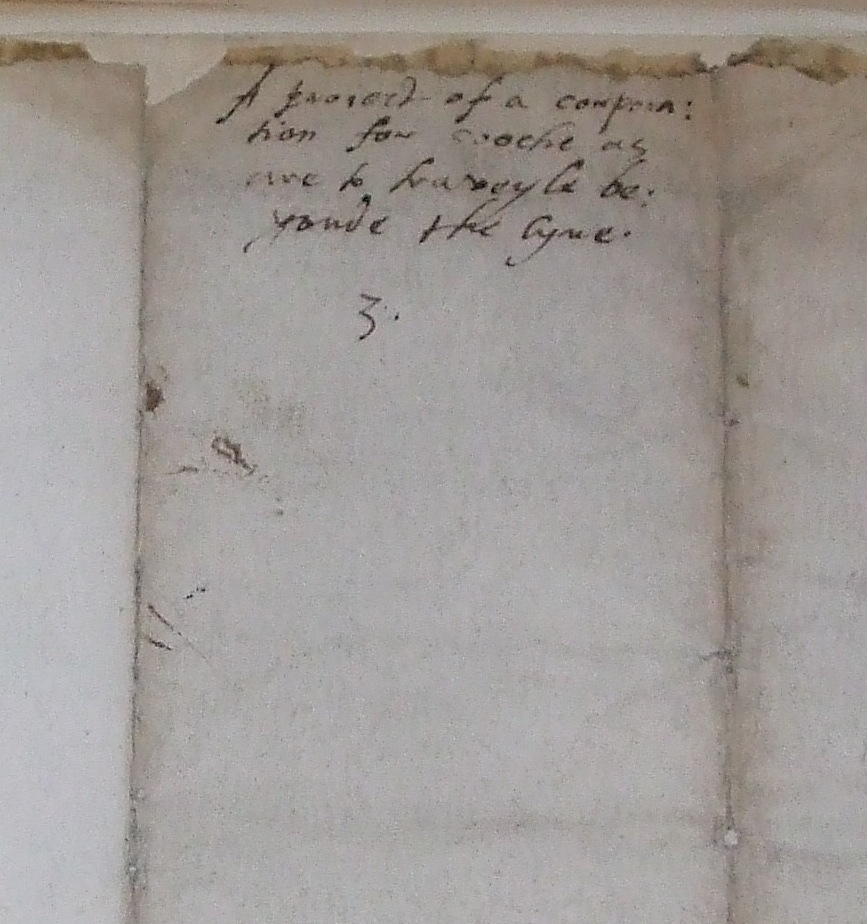 A proiect of a corpora:
tion for soche as
are to traveyle be:
yonde the lyne.
3.